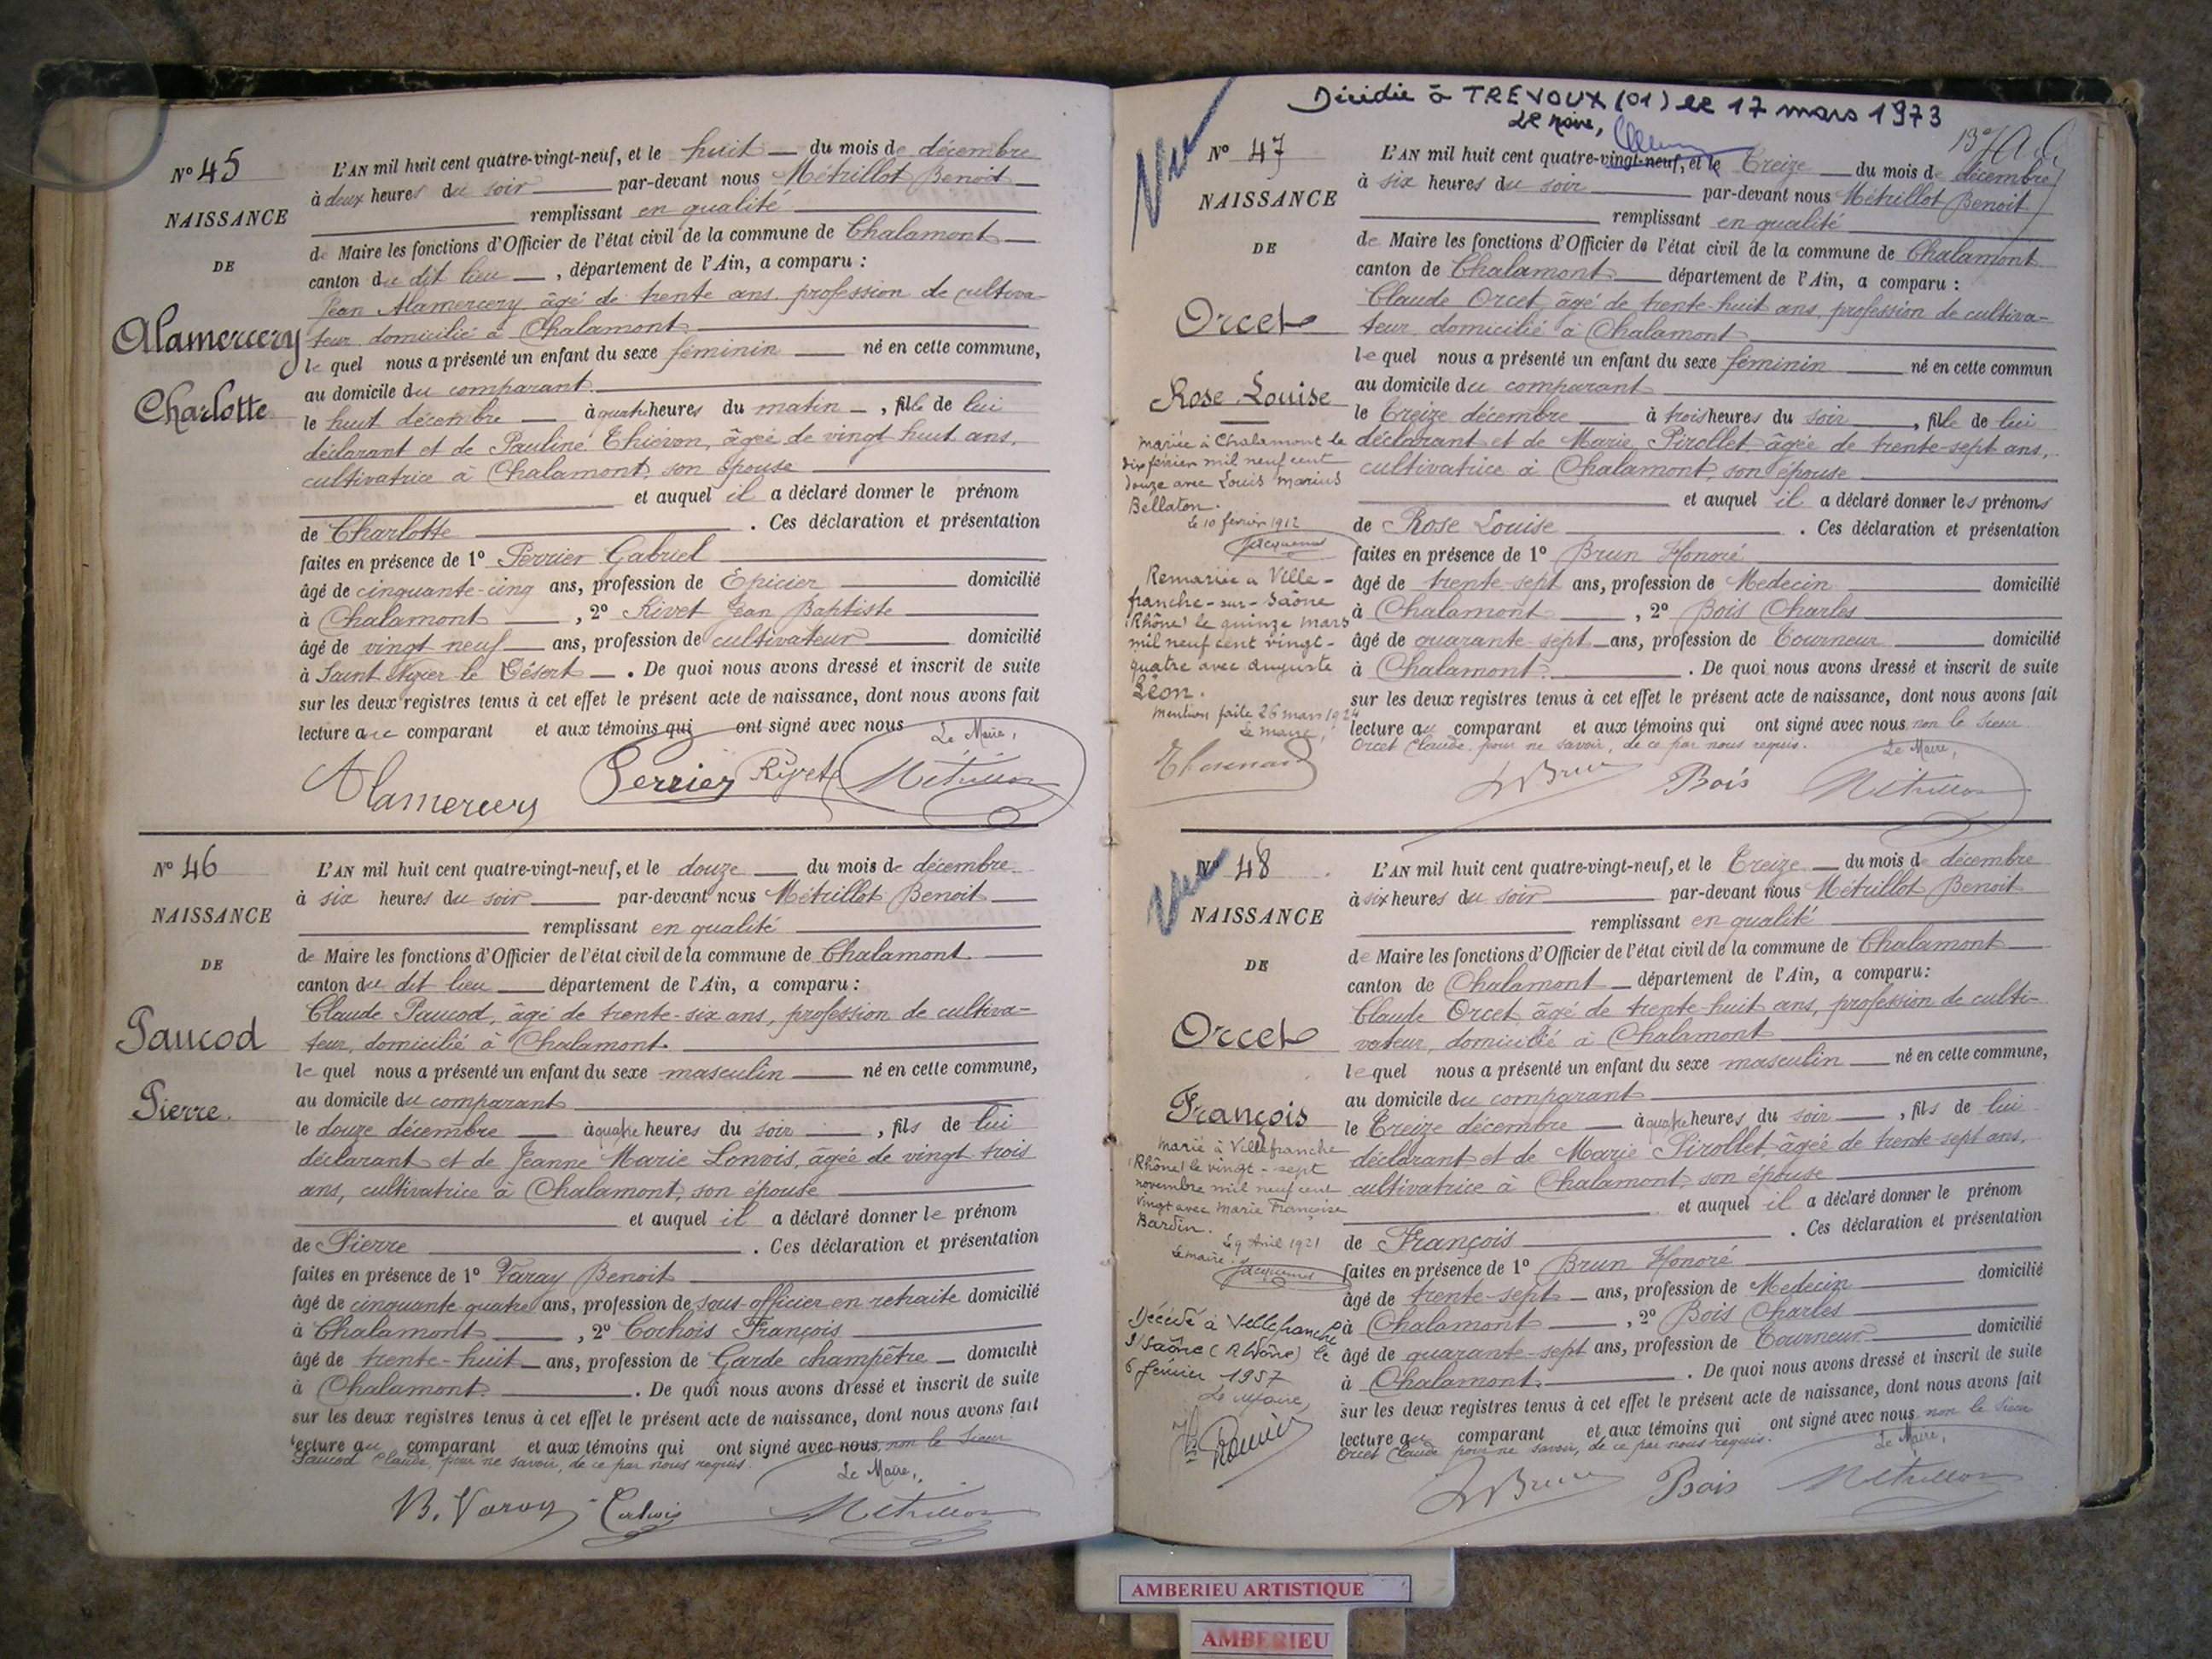 Nº 45
NAISSANCE
DE
Alamercery
Charlotte
L'AN mil huit cent quatre-vingt-neuf, et le huit du mois de décembre
à deux heures du soir par-devant nous Métrillot Benoit
remplissant en qualité
de Maire les fonctions d'Officier de l'état civil de la commune de Chalamont
canton du dit lieu, département de l'Ain, a comparu :
Jean Alamercery, âgé de trente ans, profession de cultiva-
teur domicilié à Chalamont
lequel nous a présenté un enfant du sexe féminin né en cette commune,
au domicile du comparant
le huit décembre à quatre heures du matin, fille de lui
déclarant et de Pauline Thiévon, âgée de vingt huit ans,
cultivatrice à Chalamont, son épouse
et auquel il a déclaré donner le prénom
de Charlotte. Ces déclaration et présentation
faites en présence de 1º Perrier Gabriel
âgé de cinquante-cinq ans, profession de Epicier domicilié
à Chalamont, 2º Rivet Jean Baptiste
âgé de vingt neuf ans, profession de cultivateur domicilié
à Saint Nizier le Désert. De quoi nous avons dressé et inscrit de suite
sur les deux registres tenus à cet effet le présent acte de naissance, dont nous avons fait
lecture au comparant et aux témoins qui ont signé avec nous
Le Maire,
Alamercery Perrier Rivet Métrillot
Nº 46
NAISSANCE
DE
Paucod
Pierre.
L'AN mil huit cent quatre-vingt-neuf, et le douze du mois de décembre
à six heures du soir par-devant nous Métrillot Benoit
remplissant en qualité
de Maire les fonctions d'Officier de l'état civil de la commune de Chalamont
canton du dit lieu département de l'Ain, a comparu :
Claude Paucod, âgé de trente-six ans, profession de cultiva-
teur, domicilié à Chalamont.
lequel nous a présenté un enfant du sexe masculin né en cette commune,
au domicile du comparant
le douze décembre à quatre heures du soir, fils de lui
déclarant et de Jeanne Marie Lonvis, âgée de vingt trois
ans, cultivatrice à Chalamont, son épouse
et auquel il a déclaré donner le prénom
de Pierre. Ces déclaration et présentation
faites en présence de 1º Varay Benoit
âgé de cinquante quatre ans, profession de sous-officier en retraite domicilié
à Chalamont, 2º Cochois François
âgé de trente-huit ans, profession de Garde champêtre domicilié
à Chalamont. De quoi nous avons dressé et inscrit de suite
sur les deux registres tenus à cet effet le présent acte de naissance, dont nous avons fait
lecture au comparant et aux témoins qui ont signé avec nous, non le Sieur
Paucod Claude, pour ne savoir, de ce par nous requis.
Le Maire,
B. Varay Cochois Métrillot
Décédée à TREVOUX (01) le 17 mars 1973
Le Maire,
Vu
Nº 47
NAISSANCE
DE
Orcet
Rose Louise
mariée à Chalamont le
dix février mil neuf cent
douze avec Louis Marius
Bellaton.
Le 10 février 1912
Jacquemet
Remariée à Ville-
franche-sur-Saône
(Rhône) le quinze mars
mil neuf cent vingt-
quatre avec Auguste
Léon.
Mention faite 26 mars 1924
Le maire,
L'AN mil huit cent quatre-vingt-neuf, et le treize du mois de décembre
à six heures du soir par-devant nous Métrillot Benoit
remplissant en qualité
de Maire les fonctions d'Officier de l'état civil de la commune de Chalamont
canton de Chalamont département de l'Ain, a comparu :
Claude Orcet, âgé de trente-huit ans, profession de cultiva-
teur, domicilié à Chalamont
lequel nous a présenté un enfant du sexe féminin né en cette commun
au domicile du comparant
le treize décembre à trois heures du soir, fille de lui
déclarant et de Marie Pirollet, âgée de trente-sept ans,
cultivatrice à Chalamont, son épouse
et auquel il a déclaré donner les prénoms
de Rose Louise. Ces déclaration et présentation
faites en présence de 1º Brun Honoré
âgé de trente-sept ans, profession de Medecin domicilié
à Chalamont, 2º Bois Charles
âgé de quarante-sept ans, profession de Tourneur domicilié
à Chalamont. De quoi nous avons dressé et inscrit de suite
sur les deux registres tenus à cet effet le présent acte de naissance, dont nous avons fait
lecture au comparant et aux témoins qui ont signé avec nous, non le Sieur
Orcet Claude, pour ne savoir, de ce par nous requis.
Le Maire,
Brun Bois Métrillot
Vu
Nº 48
NAISSANCE
DE
Orcet
François
Marié à Villefranche
(Rhône) le vingt-sept
novembre mil neuf cent
vingt avec Marie Françoise
Bardin.
Le 9 Avril 1921
Le maire.
Jacquemet
Décédé à Villefranche
s/Saône (Rhône) le
6 février 1957
Le Maire,
L'AN mil huit cent quatre-vingt-neuf, et le treize du mois de décembre
à six heures du soir par-devant nous Métrillot Benoit
remplissant en qualité
de Maire les fonctions d'Officier de l'état civil de la commune de Chalamont
canton de Chalamont département de l'Ain, a comparu :
Claude Orcet âgé de trente-huit ans, profession de culti-
vateur, domicilié à Chalamont
lequel nous a présenté un enfant du sexe masculin né en cette commune,
au domicile du comparant
le treize décembre à quatre heures du soir, fils de lui
déclarant et de Marie Pirollet, âgée de trente sept ans,
cultivatrice à Chalamont, son épouse
et auquel il a déclaré donner le prénom
de François. Ces déclaration et présentation
faites en présence de 1º Brun Honoré
âgé de trente-sept ans, profession de Medecin domicilié
à Chalamont, 2º Bois Charles
âgé de quarante-sept ans, profession de Tourneur domicilié
à Chalamont. De quoi nous avons dressé et inscrit de suite
sur les deux registres tenus à cet effet le présent acte de naissance, dont nous avons fait
lecture au comparant et aux témoins qui ont signé avec nous, non le Sieur
Orcet Claude pour ne savoir, de ce par nous requis.
Le Maire,
Brun Bois Métrillot
AMBERIEU ARTISTIQUE
AMBERIEU